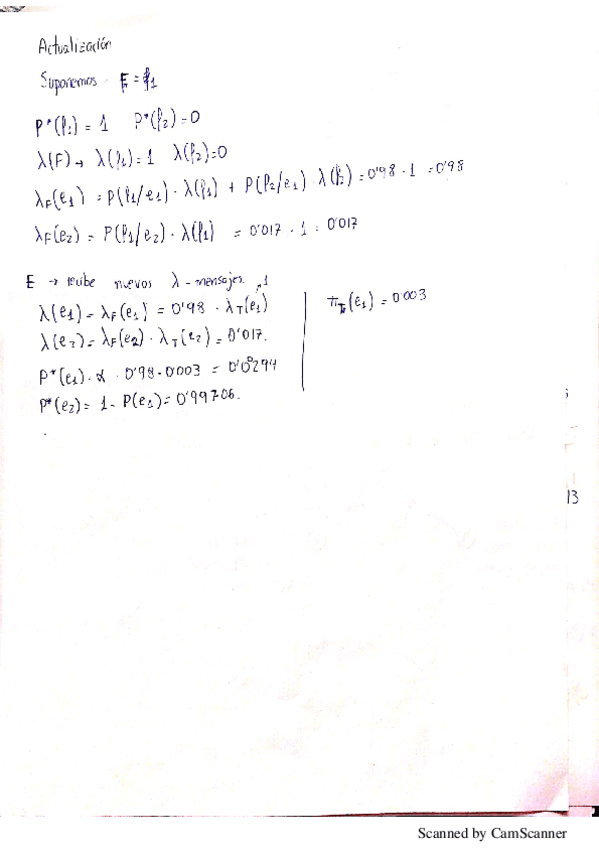 Actualización
Suponemos F = f1
P*(f1) = 1 P*(f2) = 0
λ(F) → λ(f1) = 1 λ(f2) = 0
λF(e1) = P(f1/e1) · λ(f1) + P(f2/e1) · λ(f2) = 0'98 · 1 = 0'98
λF(e2) = P(f1/e2) · λ(f1) = 0'017 · 1 = 0'017
E → recibe nuevos λ - mensajes. 1
λ(e1) = λF(e1) = 0'98 · λT(e1)
π (e1) = 0'003
λ(e2) = λF(e2) · λT(e2) = 0'017.
P*(e1) · α · 0'98 · 0'003 = 0'00294
P*(e2) = 1 - P(e1) = 0'99706.
13
Scanned by CamScanner